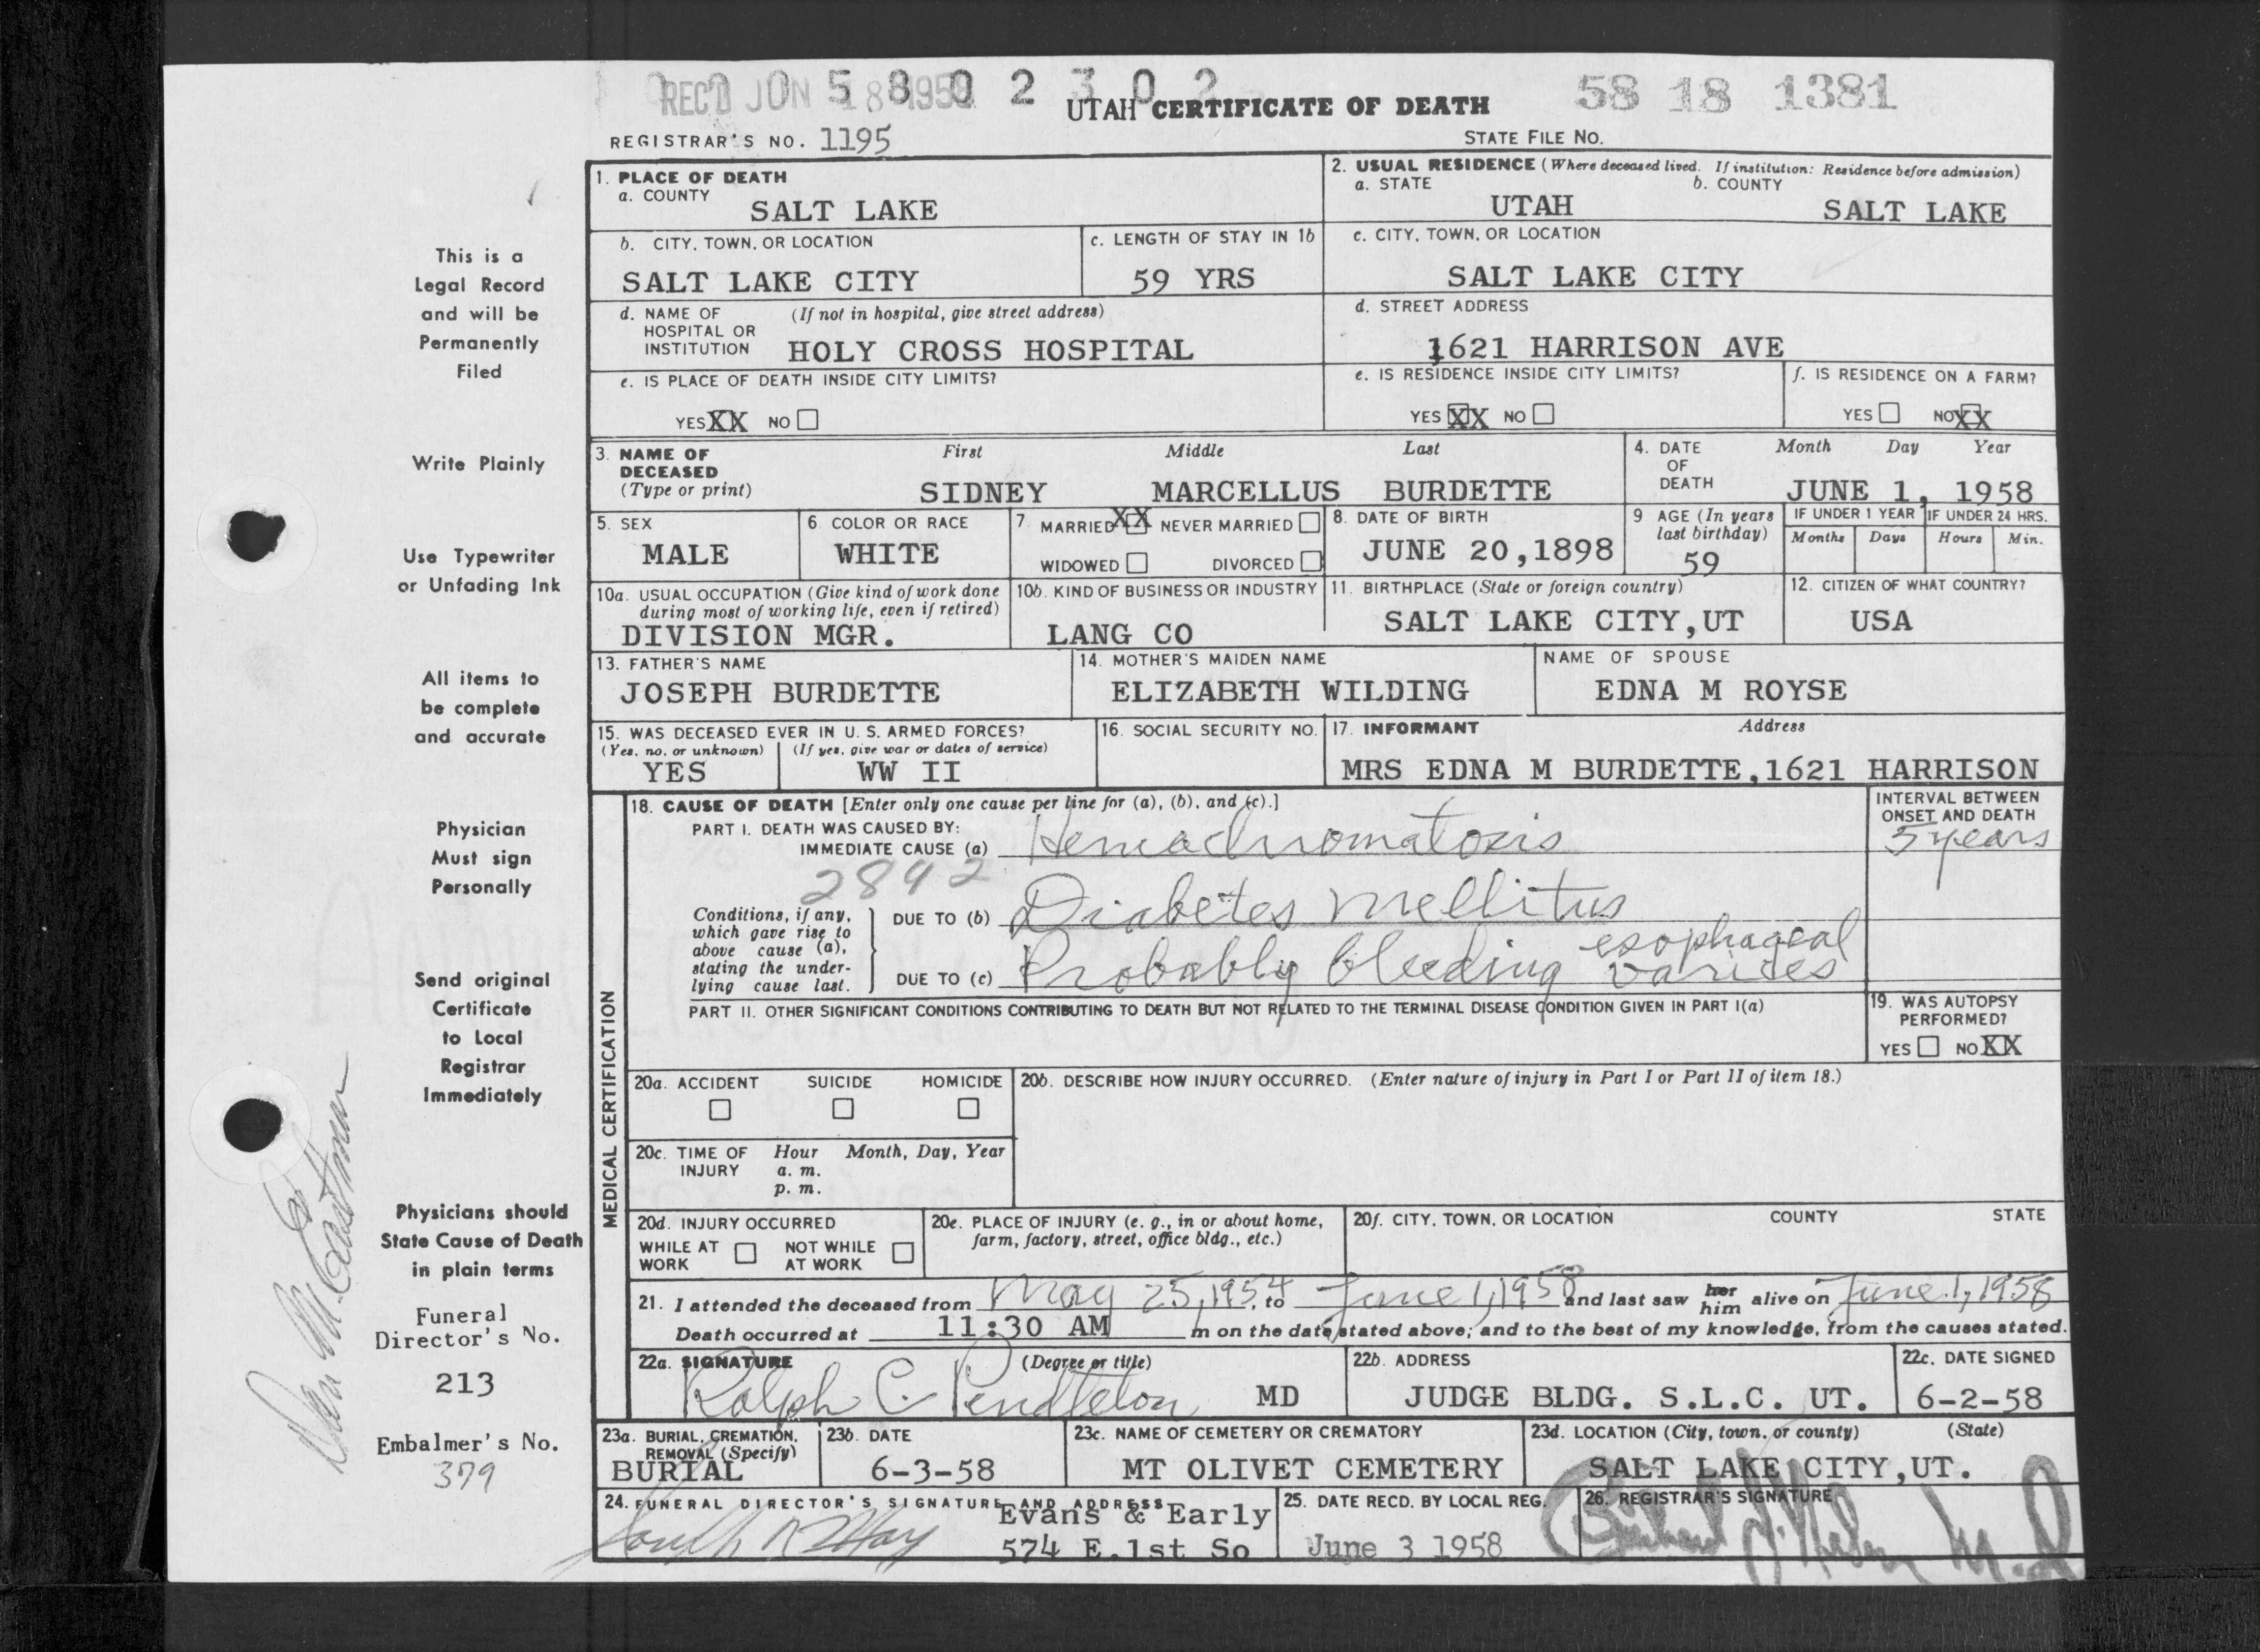 REC'D JUN 18 1958
58 02302
58 18 1381
UTAH CERTIFICATE OF DEATH
REGISTRAR'S NO. 1195
STATE FILE NO.
This is a
Legal Record
and will be
Permanently
Filed
Write Plainly
Use Typewriter
or Unfading Ink
All items to
be complete
and accurate
Physician
Must sign
Personally
Send original
Certificate
to Local
Registrar
Immediately
Physicians should
State Cause of Death
in plain terms
Funeral
Director's No.
213
Embalmer's No.
379
1. PLACE OF DEATH
a. COUNTY
SALT LAKE
2. USUAL RESIDENCE (Where deceased lived. If institution: Residence before admission)
a. STATE b. COUNTY
UTAH SALT LAKE
b. CITY, TOWN, OR LOCATION
SALT LAKE CITY
c. LENGTH OF STAY IN 1b
59 YRS
c. CITY, TOWN, OR LOCATION
SALT LAKE CITY
d. NAME OF (If not in hospital, give street address)
HOSPITAL OR
INSTITUTION HOLY CROSS HOSPITAL
d. STREET ADDRESS
1621 HARRISON AVE
e. IS PLACE OF DEATH INSIDE CITY LIMITS?
YES XX NO
e. IS RESIDENCE INSIDE CITY LIMITS?
YES XX NO
f. IS RESIDENCE ON A FARM?
YES NO XX
3. NAME OF First Middle Last
DECEASED
(Type or print) SIDNEY MARCELLUS BURDETTE
4. DATE Month Day Year
OF
DEATH JUNE 1, 1958
5. SEX
MALE
6. COLOR OR RACE
WHITE
7. MARRIED XX NEVER MARRIED
WIDOWED DIVORCED
8. DATE OF BIRTH
JUNE 20,1898
9 AGE (In years
last birthday)
59
IF UNDER 1 YEAR IF UNDER 24 HRS.
Months Days Hours Min.
10a. USUAL OCCUPATION (Give kind of work done
during most of working life, even if retired)
DIVISION MGR.
10b. KIND OF BUSINESS OR INDUSTRY
LANG CO
11. BIRTHPLACE (State or foreign country)
SALT LAKE CITY,UT
12. CITIZEN OF WHAT COUNTRY?
USA
13. FATHER'S NAME
JOSEPH BURDETTE
14. MOTHER'S MAIDEN NAME
ELIZABETH WILDING
NAME OF SPOUSE
EDNA M ROYSE
15. WAS DECEASED EVER IN U. S. ARMED FORCES?
(Yes, no, or unknown) (If yes, give war or dates of service)
YES WW II
16. SOCIAL SECURITY NO.
17. INFORMANT Address
MRS EDNA M BURDETTE,1621 HARRISON
MEDICAL CERTIFICATION
18. CAUSE OF DEATH [Enter only one cause per line for (a), (b), and (c).]
PART I. DEATH WAS CAUSED BY:
IMMEDIATE CAUSE (a) Hemachromatosis
INTERVAL BETWEEN
ONSET AND DEATH
5 years
2892
Conditions, if any,
which gave rise to
above cause (a),
stating the under-
lying cause last.
DUE TO (b) Diabetes mellitus
DUE TO (c) Probably bleeding esophageal varices
PART II. OTHER SIGNIFICANT CONDITIONS CONTRIBUTING TO DEATH BUT NOT RELATED TO THE TERMINAL DISEASE CONDITION GIVEN IN PART I(a)
19. WAS AUTOPSY
PERFORMED?
YES NO XX
20a. ACCIDENT SUICIDE HOMICIDE
20b. DESCRIBE HOW INJURY OCCURRED. (Enter nature of injury in Part I or Part II of item 18.)
20c. TIME OF Hour Month, Day, Year
INJURY a. m.
p. m.
20d. INJURY OCCURRED
WHILE AT NOT WHILE
WORK AT WORK
20e. PLACE OF INJURY (e. g., in or about home,
farm, factory, street, office bldg., etc.)
20f. CITY, TOWN, OR LOCATION COUNTY STATE
21. I attended the deceased from May 25, 1954, to June 1, 1958 and last saw her him alive on June 1, 1958
Death occurred at 11:30 AM m on the date stated above; and to the best of my knowledge, from the causes stated.
22a. SIGNATURE (Degree or title)
Ralph C. Pendleton MD
22b. ADDRESS
JUDGE BLDG. S.L.C. UT.
22c. DATE SIGNED
6-2-58
23a. BURIAL, CREMATION,
REMOVAL (Specify)
BURIAL
23b. DATE
6-3-58
23c. NAME OF CEMETERY OR CREMATORY
MT OLIVET CEMETERY
23d. LOCATION (City, town, or county) (State)
SALT LAKE CITY,UT.
24. FUNERAL DIRECTOR'S SIGNATURE AND ADDRESS
Evans & Early
574 E.1st So
25. DATE RECD. BY LOCAL REG.
June 3 1958
26. REGISTRAR'S SIGNATURE
M.D